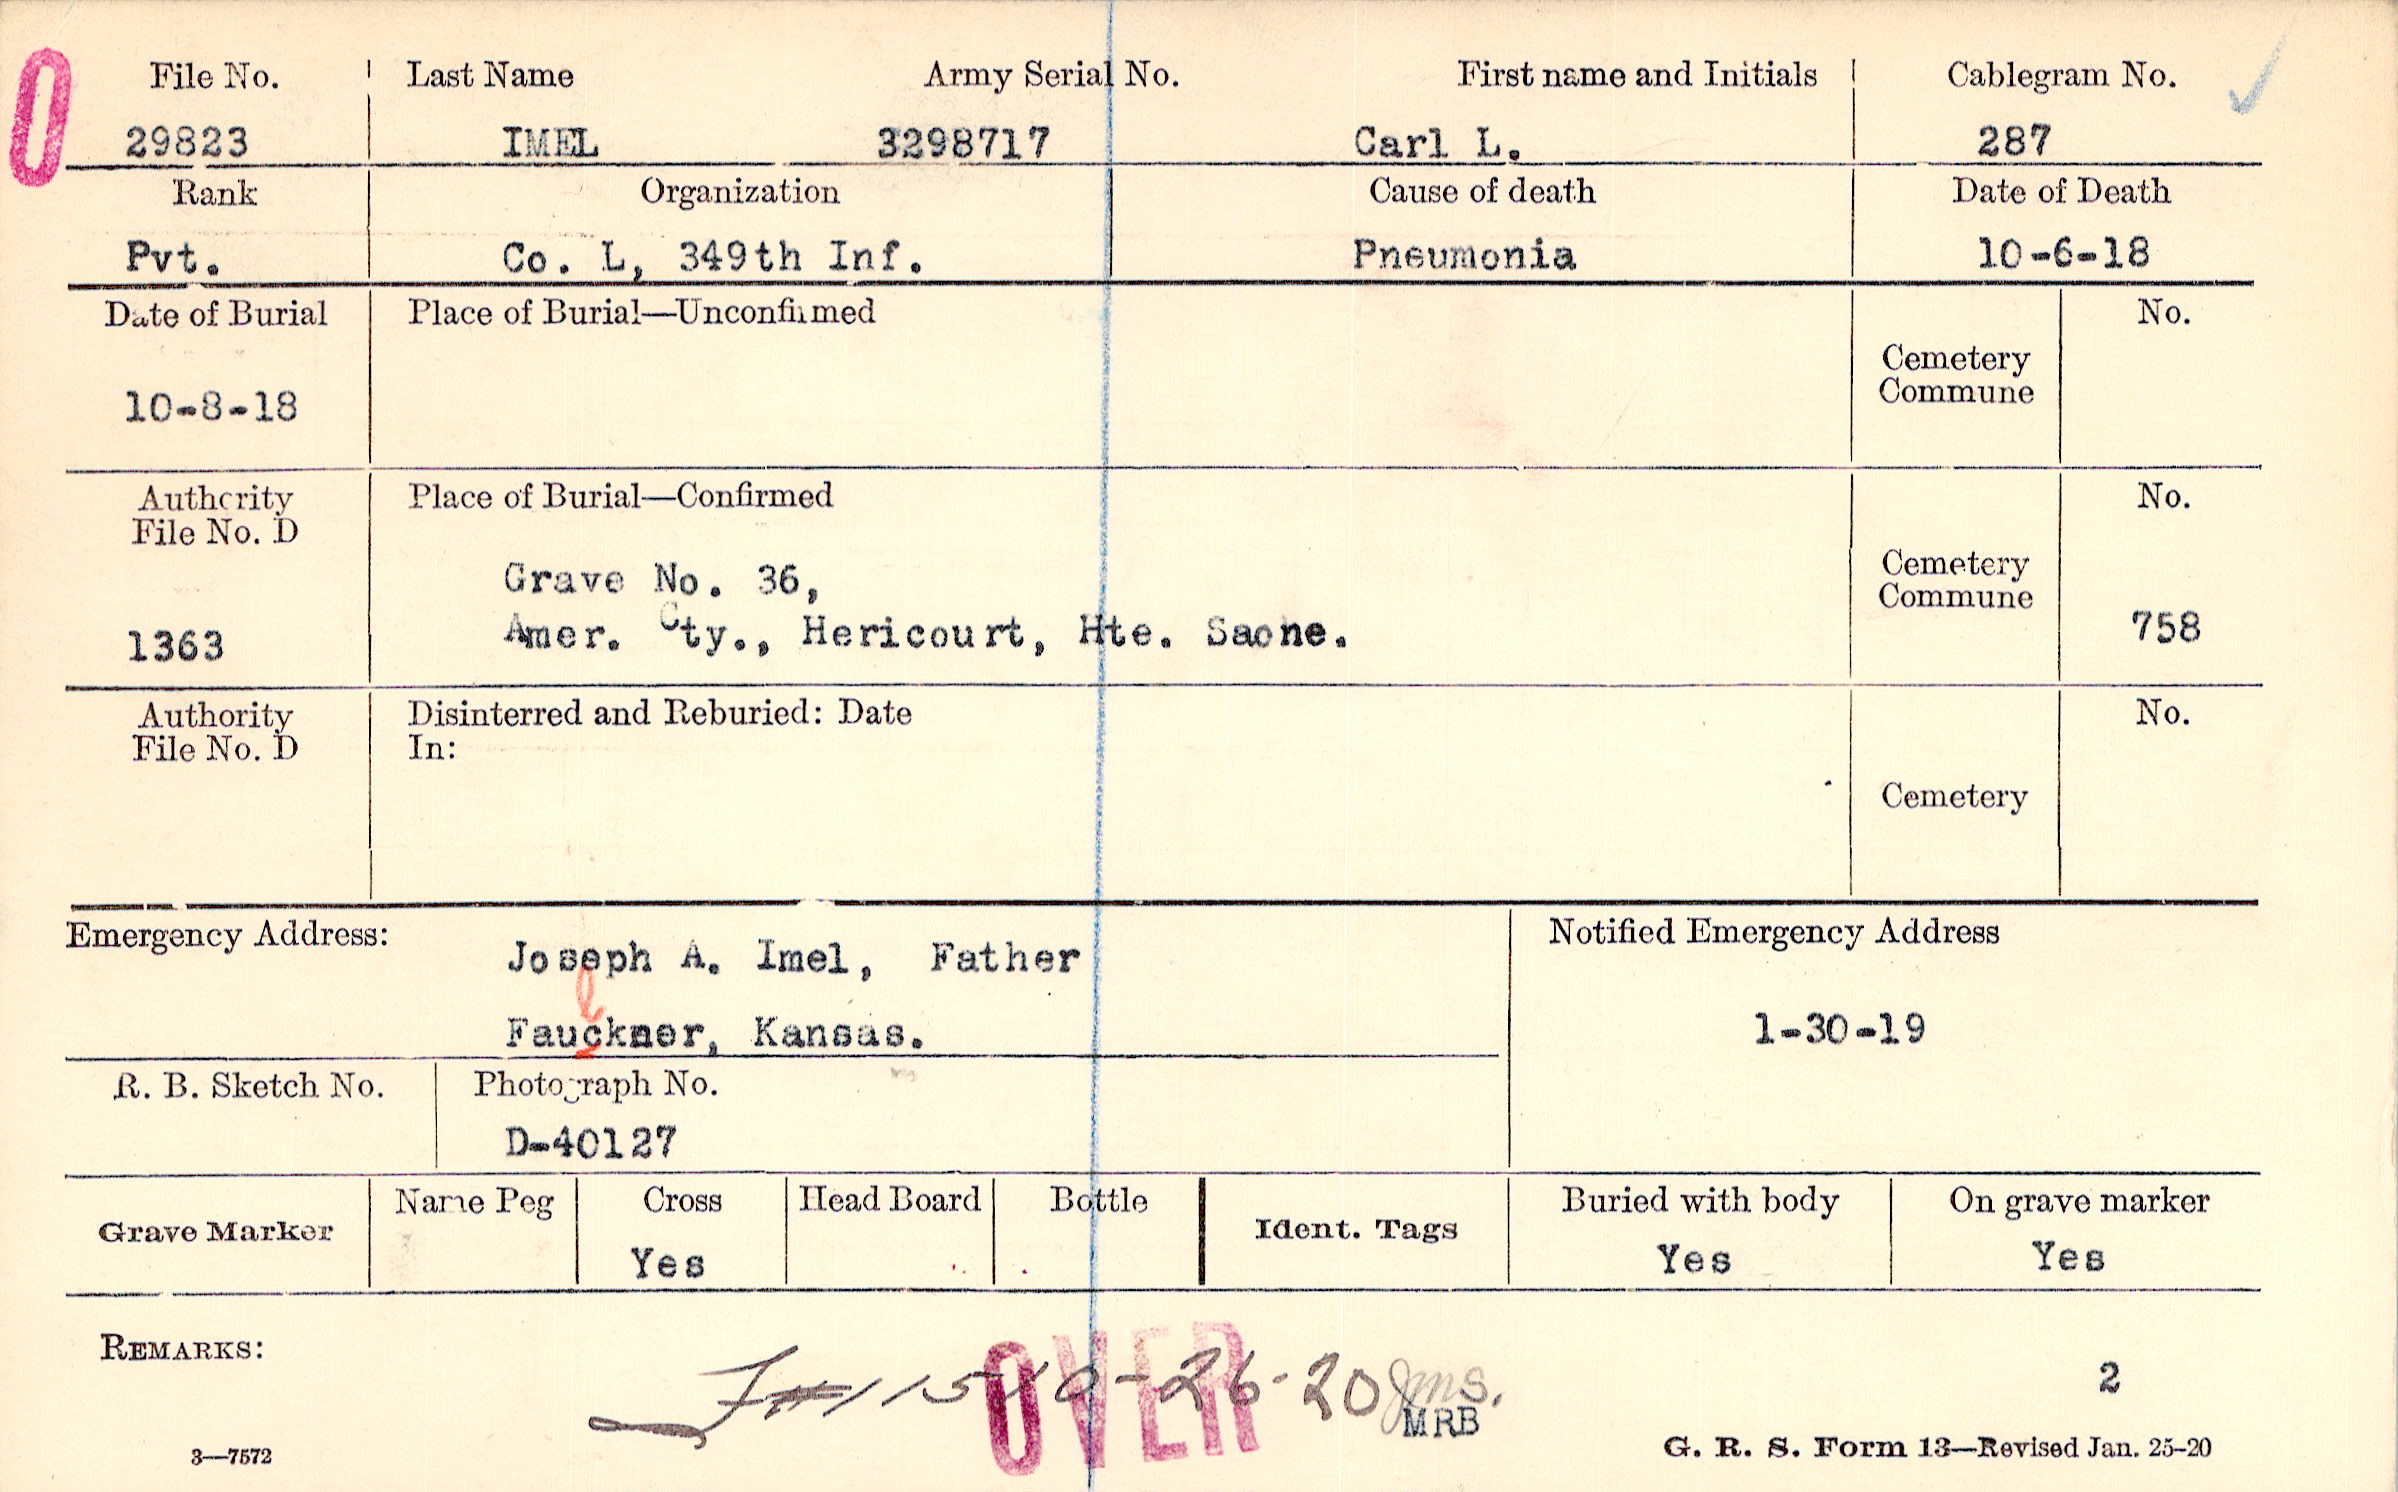 O
File No. Last Name Army Serial No. First name and Initials Cablegram No.
29823 IMEL 3298717 Carl L. 287
Rank Organization Cause of death Date of Death
Pvt. Co. L, 349th Inf. Pneumonia 10-6-18
Date of Burial Place of Burial—Unconfirmed No.
Cemetery
Commune
10-8-18
Authority Place of Burial—Confirmed No.
File No. D
Grave No. 36, Cemetery
Commune
1363 Amer. Cty., Hericourt, Hte. Saone. 758
Authority Disinterred and Reburied: Date No.
File No. D In:
Cemetery
Emergency Address: Joseph A. Imel, Father Notified Emergency Address
l
Fauckner, Kansas. 1-30-19
R. B. Sketch No. Photograph No.
D-40127
Grave Marker Name Peg Cross Head Board Bottle Ident. Tags Buried with body On grave marker
Yes Yes Yes
REMARKS:
OVER
#115 10-26-20 Jms.
MRB
2
3—7572 G. R. S. Form 13—Revised Jan. 25-20